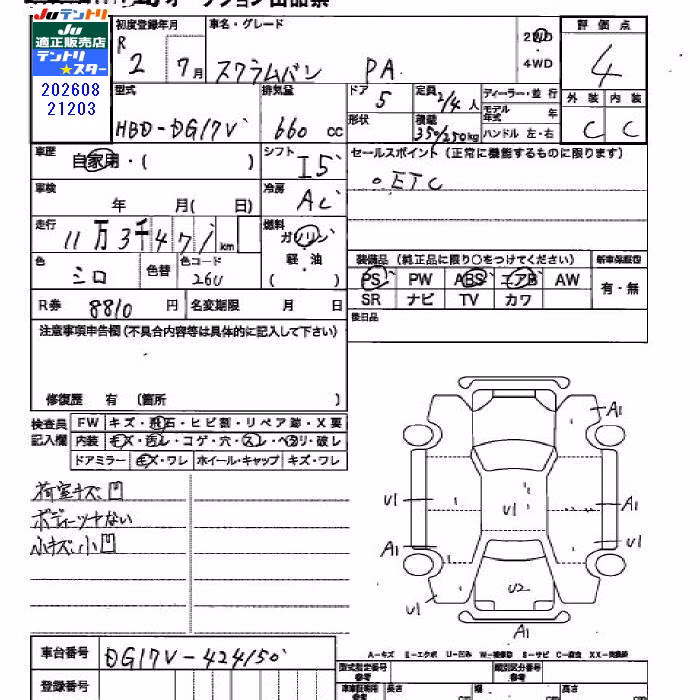 JUテントリ
JU
適正販売店
テントリ
★スター
202608
21203
初度登録年月
R 2 7月
車名・グレード
スクラムバン PA
2WD
4WD
評価点
4
外装 内装
C C
型式
HBD-DG17V
排気量
660 cc
ドア
5
形状
定員 2/4 人
積載 350/250kg
ディーラー・並行
モデル年式 年
ハンドル 左・右
車歴
自家用・( )
シフト
I5
セールスポイント(正常に機能するものに限ります)
。ETC
車検
年 月( 日)
冷房
AC
走行
11万3千471km
燃料
ガソリン
軽・油
( )
色
シロ
色替
色コード
26U
装備品(純正品に限り○をつけてください)
新車保証書
PS PW ABS エアB AW
有・無
SR ナビ TV カワ
R券 8810 円
名変期限 月 日
後日品
注意事項申告欄(不具合内容等は具体的に記入して下さい)
修復歴 有 (箇所 )
検査員
記入欄
FW キズ・飛石・ヒビ割・リペア跡・X要
内装 キズ・汚レ・コゲ・穴・スレ・ヘタリ・破レ
ドアミラー キズ・ワレ ホイール・キャップ キズ・ワレ
荷室キズ凹
ボディーツヤない
小キズ、小凹
A1
U1
U1
A1
A1
U1
U1
U2
A1
A-キズ E-エクボ U-凹み W-補修跡 S-サビ C-腐食 XX-交換済
車台番号 DG17V-424150
登録番号
型式指定番号
参考
類別区分番号
参考
長さ 幅 高さ